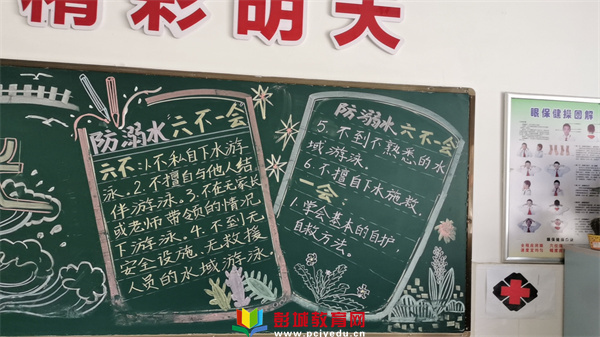 精彩明天
防溺水六不一会
六不:1.不私自下水游
泳.2.不擅自与他人结
伴游泳.3.不在无家长
或老师带领的情况
下游泳.4.不到无
安全设施、无救援
人员的水域游泳.
防溺水六不一会
5.不到不熟悉的水
域游泳.
6.不擅自下水施救.
一会:
1.学会基本的自护、
自救方法。
眼保健操图解
彭城教育网
www.pcjyedu.cn